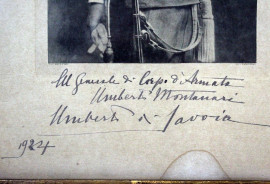 Al Generale di Corpo d'Armata
Umberto Montanari
Umberto di Savoia
1924